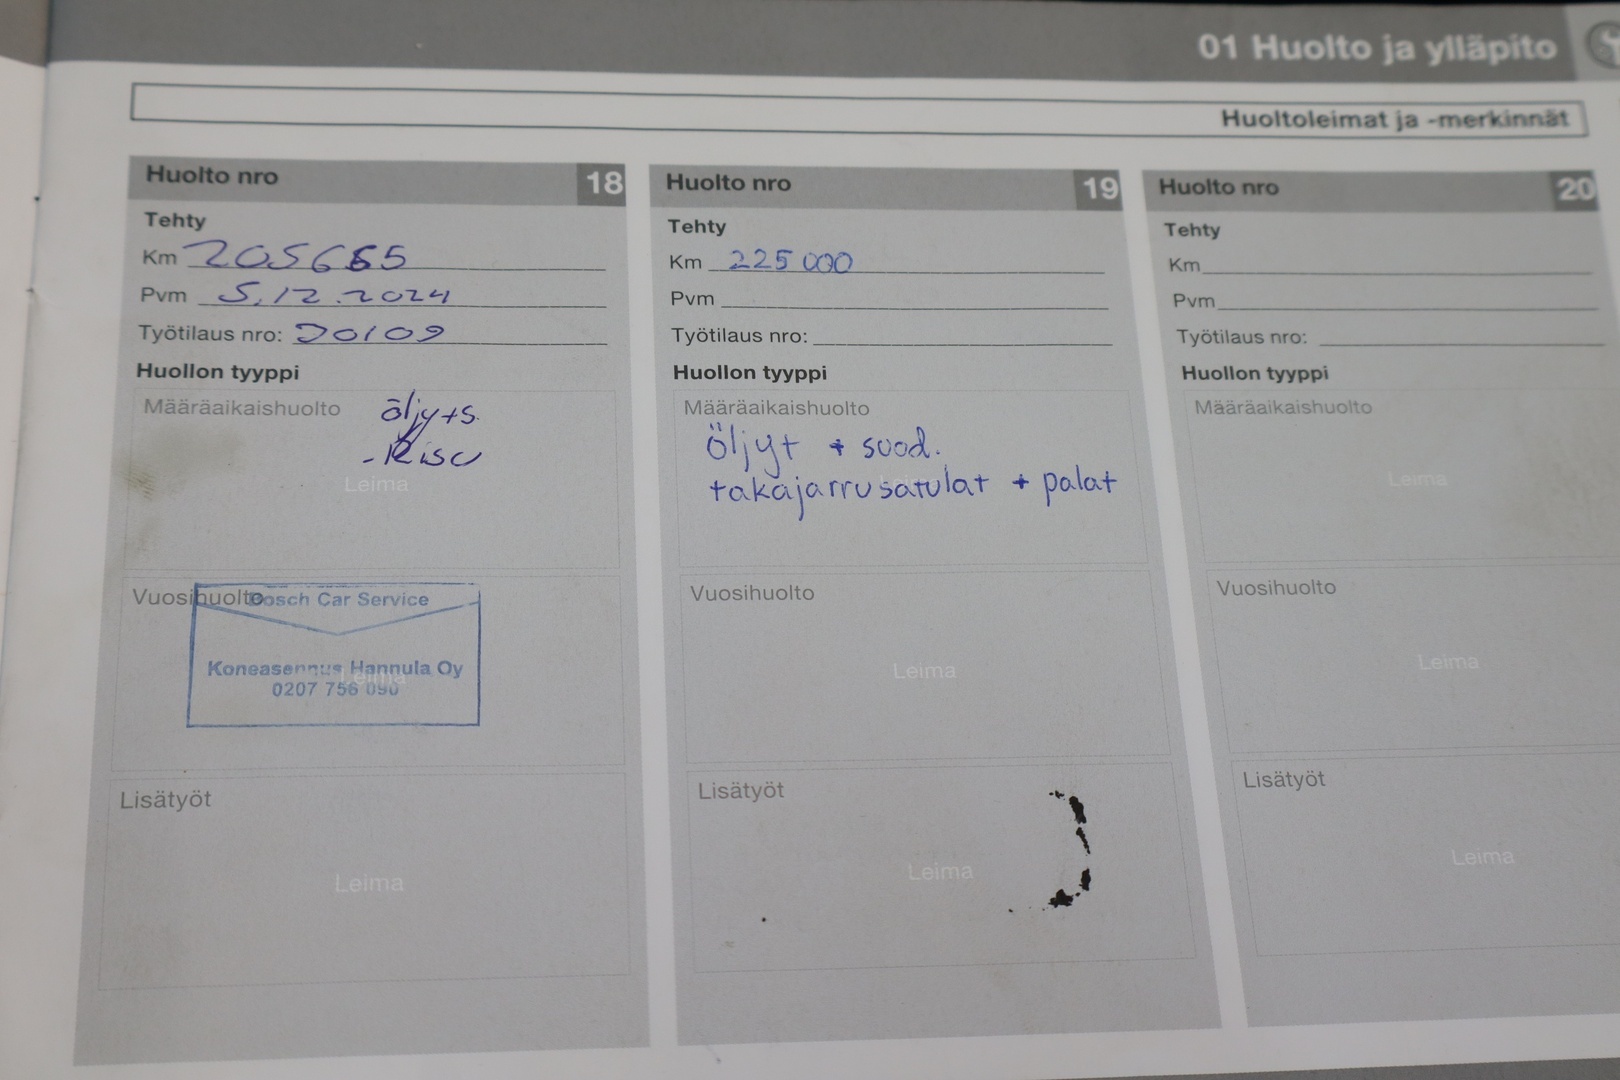 01 Huolto ja ylläpito
Huoltoleimat ja -merkinnät
Huolto nro 18
Tehty
Km 205665
Pvm 5.12.2024
Työtilaus nro: 20109
Huollon tyyppi
Määräaikaishuolto öljy+s.
Leima
Vuosihuolto
Bosch Car Service
Koneasennus Hannula Oy
Leima
0207 756 090
Lisätyöt
Leima
Huolto nro 19
Tehty
Km 225 000
Pvm
Työtilaus nro:
Huollon tyyppi
Määräaikaishuolto
öljyt + suod.
takajarrusatulat + palat
Vuosihuolto
Leima
Lisätyöt
Leima
Huolto nro 20
Tehty
Km
Pvm
Työtilaus nro:
Huollon tyyppi
Määräaikaishuolto
Leima
Vuosihuolto
Leima
Lisätyöt
Leima